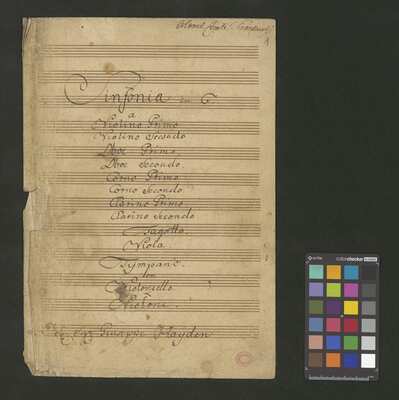 Sinfonia in G.
a
Violino Primo
Violino Secondo
Oboe Primo
Oboe Secondo.
Corno Primo
Corno Secondo
Clarino Primo
Clarino Secondo
Fagotto.
Viola.
Tympano.
Con
Violoncello
Violone.
Giuseppe Haydn
colorchecker